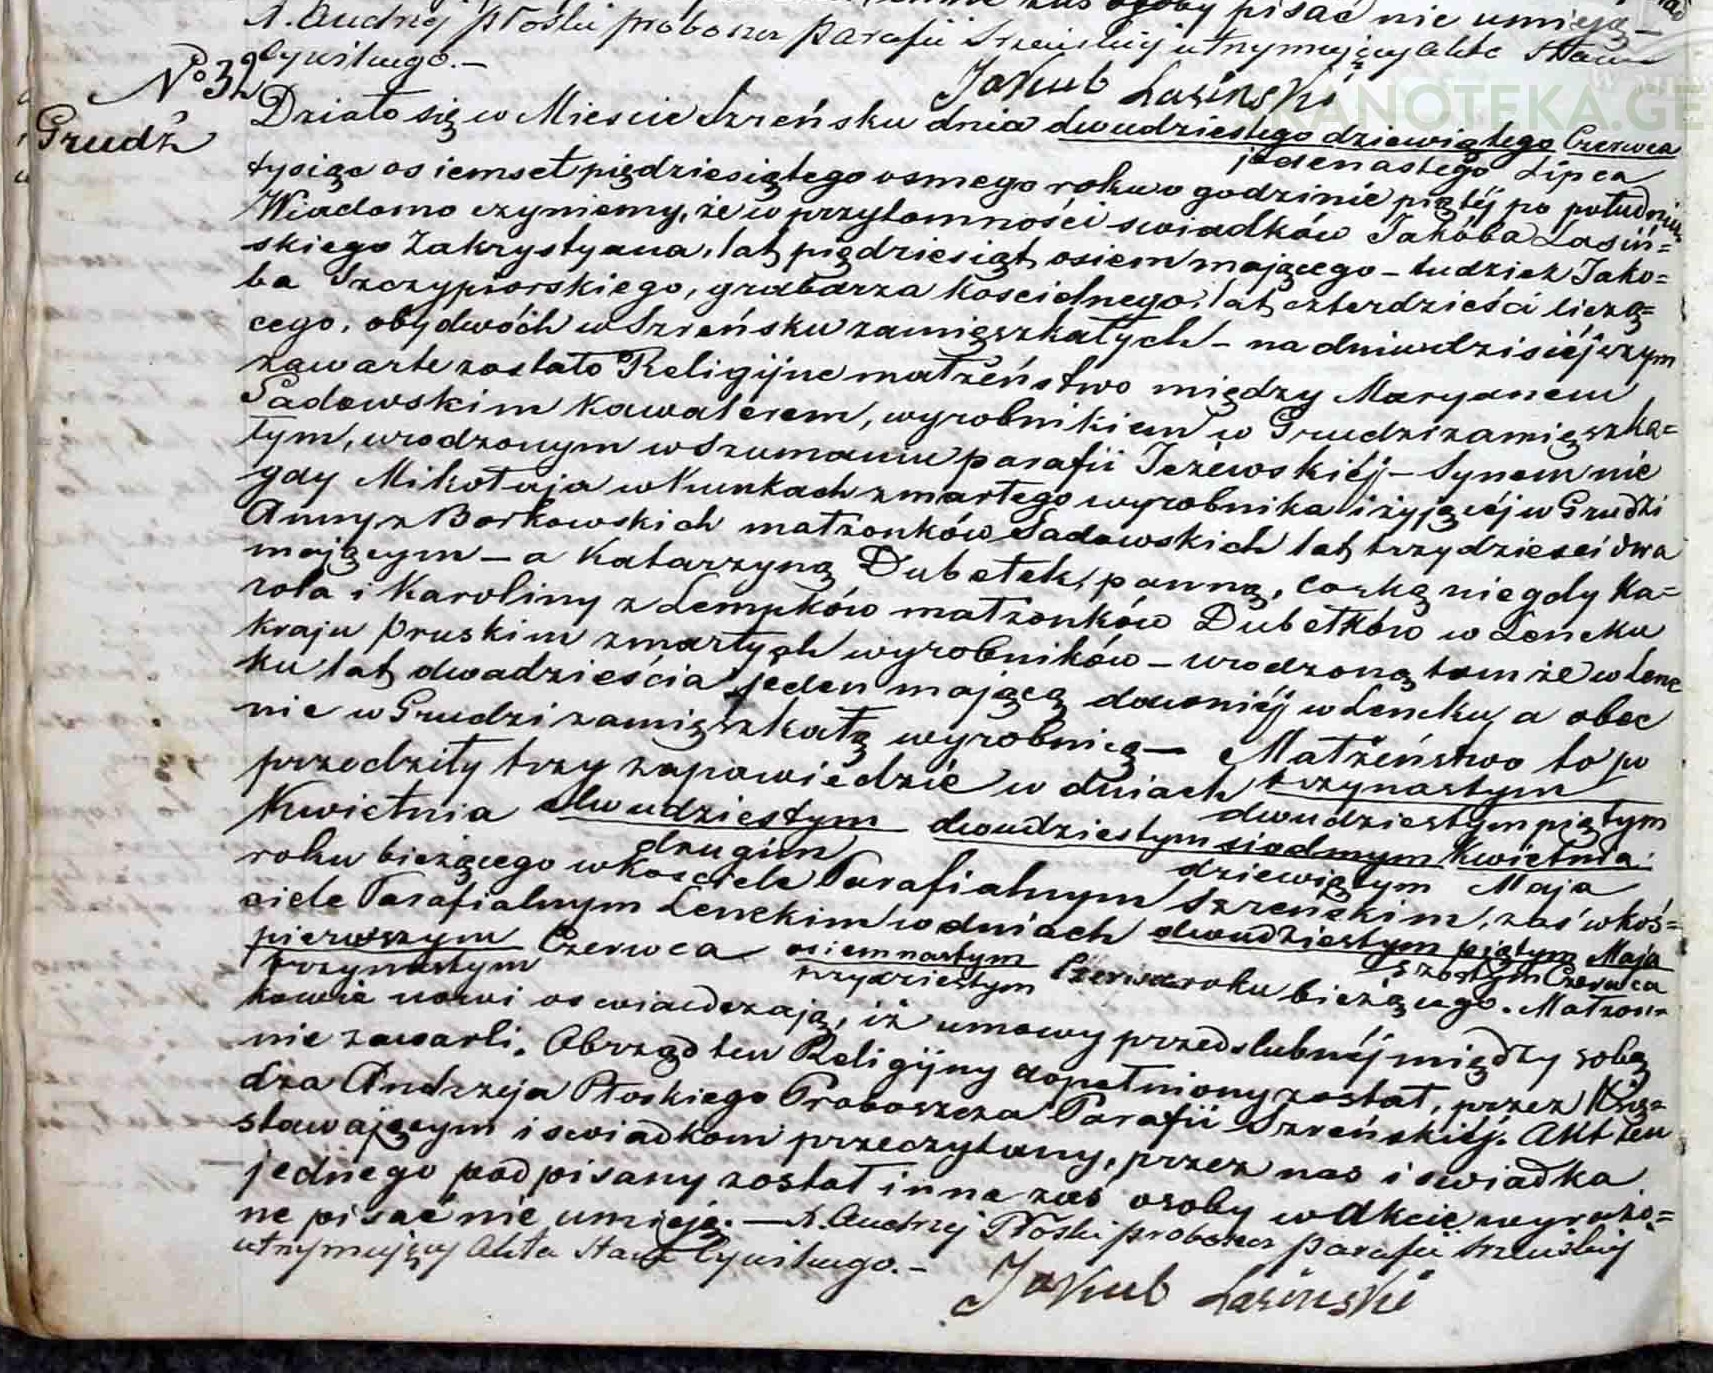 osoby pisać nie umieją –
X. Andrzej Płoski proboszcz Parafii Szreńskiej utrzymujący Akta Stanu
Cywilnego. –
Jakub Lasinski
SKANOTEKA.GE
No 32
Grudź
Działo się w Mieście Szreńsku dnia dwudziestego dziewiątego Czerwca
jedenastego Lipca
tysiąc osiemset piędziesiątego osmego roku o godzinie piątéj po południu
Wiadomo czyniemy, że w przytomności swiadków Jakóba Lasiń=
skiego Zakrystyana, lat piędziesiąt osiem mającego – tudzież Jako=
ba Szczypiorskiego, grabarza kościelnego, lat czterdzieści liczą=
cego, obydwóch w Szreńsku zamięszkałych – na dniu dzisiéjszym
zawarte zostało Religijne małżeństwo między Maryanem
Sadowskim kawalerem, wyrobnikiem w Grudzi zamięszka=
łym, urodzonym w Szumaniu parafii Jeżewskiéj – Synem nie
gdy Mikołaja w Kunkach zmarłego wyrobnika i żyjącéj w Grudzi
Anny z Borkowskich małżonków Sadowskich lat trzydzieści dwa
mającym – a Katarzyną Dubełek, panną, corką niegdy Ka=
rola i Karoliny z Lempków małżonków Dubełków w Lencku
kraju pruskim zmarłych wyrobników – urodzoną tamże w Lenc
ku lat dwadzieścia jeden mającą dawniéj w Lencku, a obec
nie w Grudzi zamięszkałą wyrobnicą – Małżeństwo to po
przedziły trzy zapowiedzie w dniach trzynastym
dwudziestym piątym
Kwietnia dwudziestym dwudziestym siodmym Kwietnia
drugim dziewiątym Maja
roku bieżącego w Kościele Parafialnym Szreńskim, zaś w Koś=
ciele Parafialnym Lenckim w dniach dwudziestym piątym Maja
szóstym Czerwca
pierwszym Czerwca osiemnastym Czerwca roku bieżącego. Małżon=
trzynastym trzydziestym
kowie nowi oswiadczają, iż umowy przedslubnéj między sobą
nie zawarli. Obrząd ten Religijny dopełniony został, przez Księ=
dza Andrzeja Płoskiego Proboszcza Parafii Szreńskiéj. Akt ten
stawającym i swiadkom przeczytany, przez nas i swiadka
jednego podpisany został inne zaś osoby w akcie wyrażo=
ne pisać nie umieją. – X. Andrzej Płoski proboszcz Parafii Szreńskiej
utrzymujący Akta Stanu Cywilnego. –
Jakub Lasinski